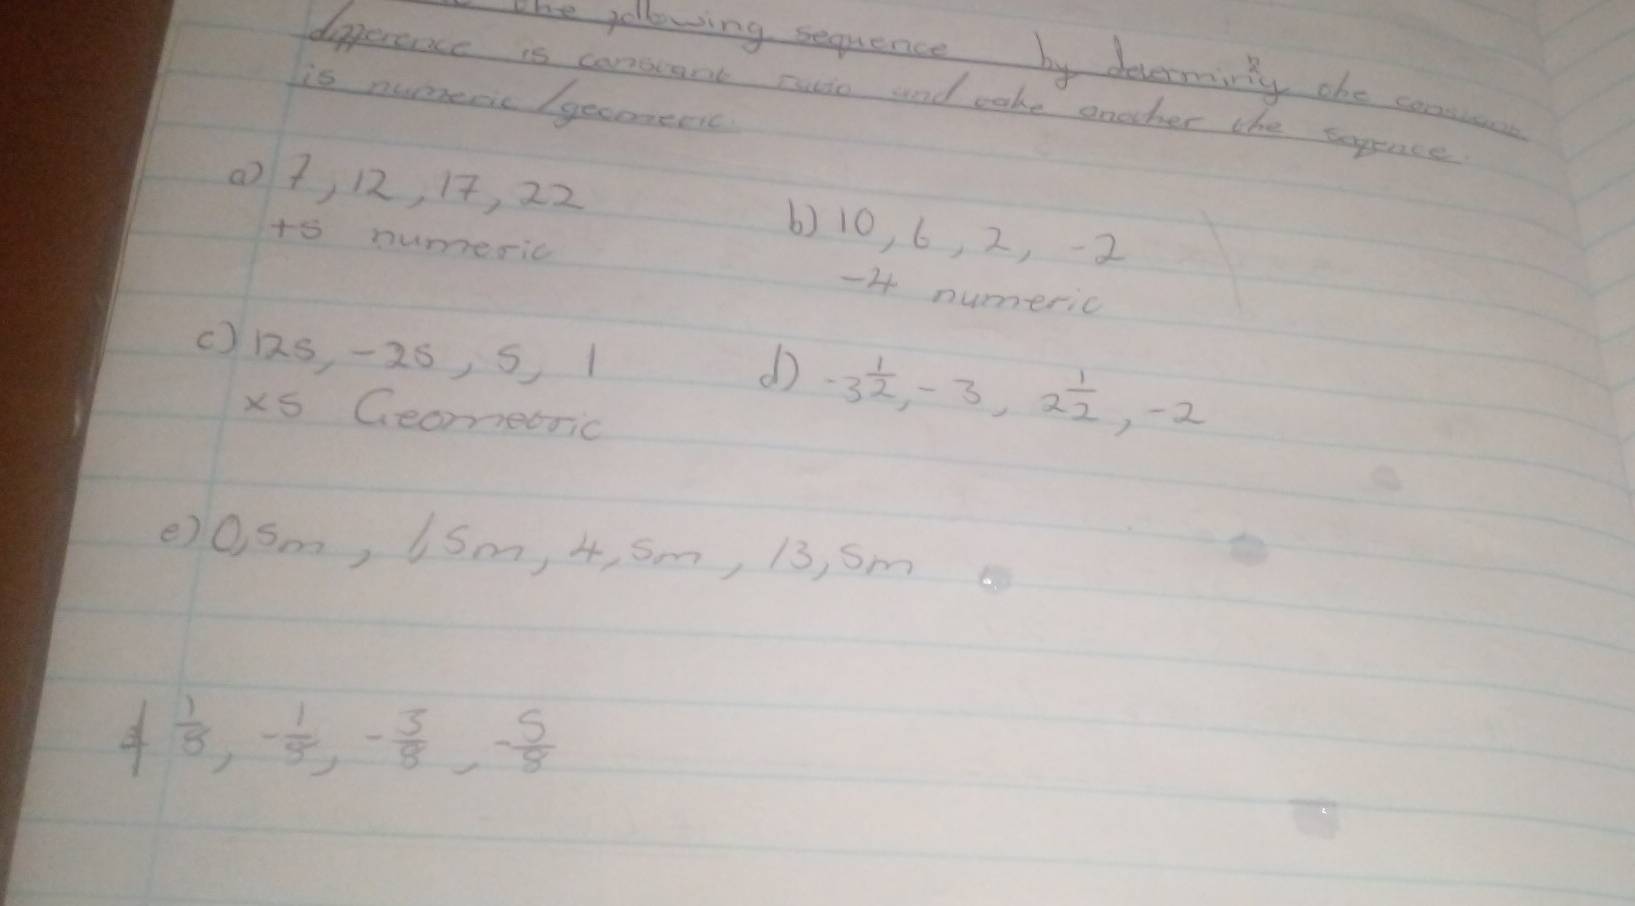 the following sequence by determining the constant
difference is constant ratio and take another the seqence
is numeric/geometric
a) 7, 12, 17, 22
+5 numeric
b) 10, 6, 2, -2
-4 numeric
c) 125, -25, 5, 1
×5 Geometric
d) -3 1/2, -3, 2 1/2, -2
e) 0,5m, 1,5m, 4,5m, 13,5m
f 1/8, -1/8, -3/8, -5/8